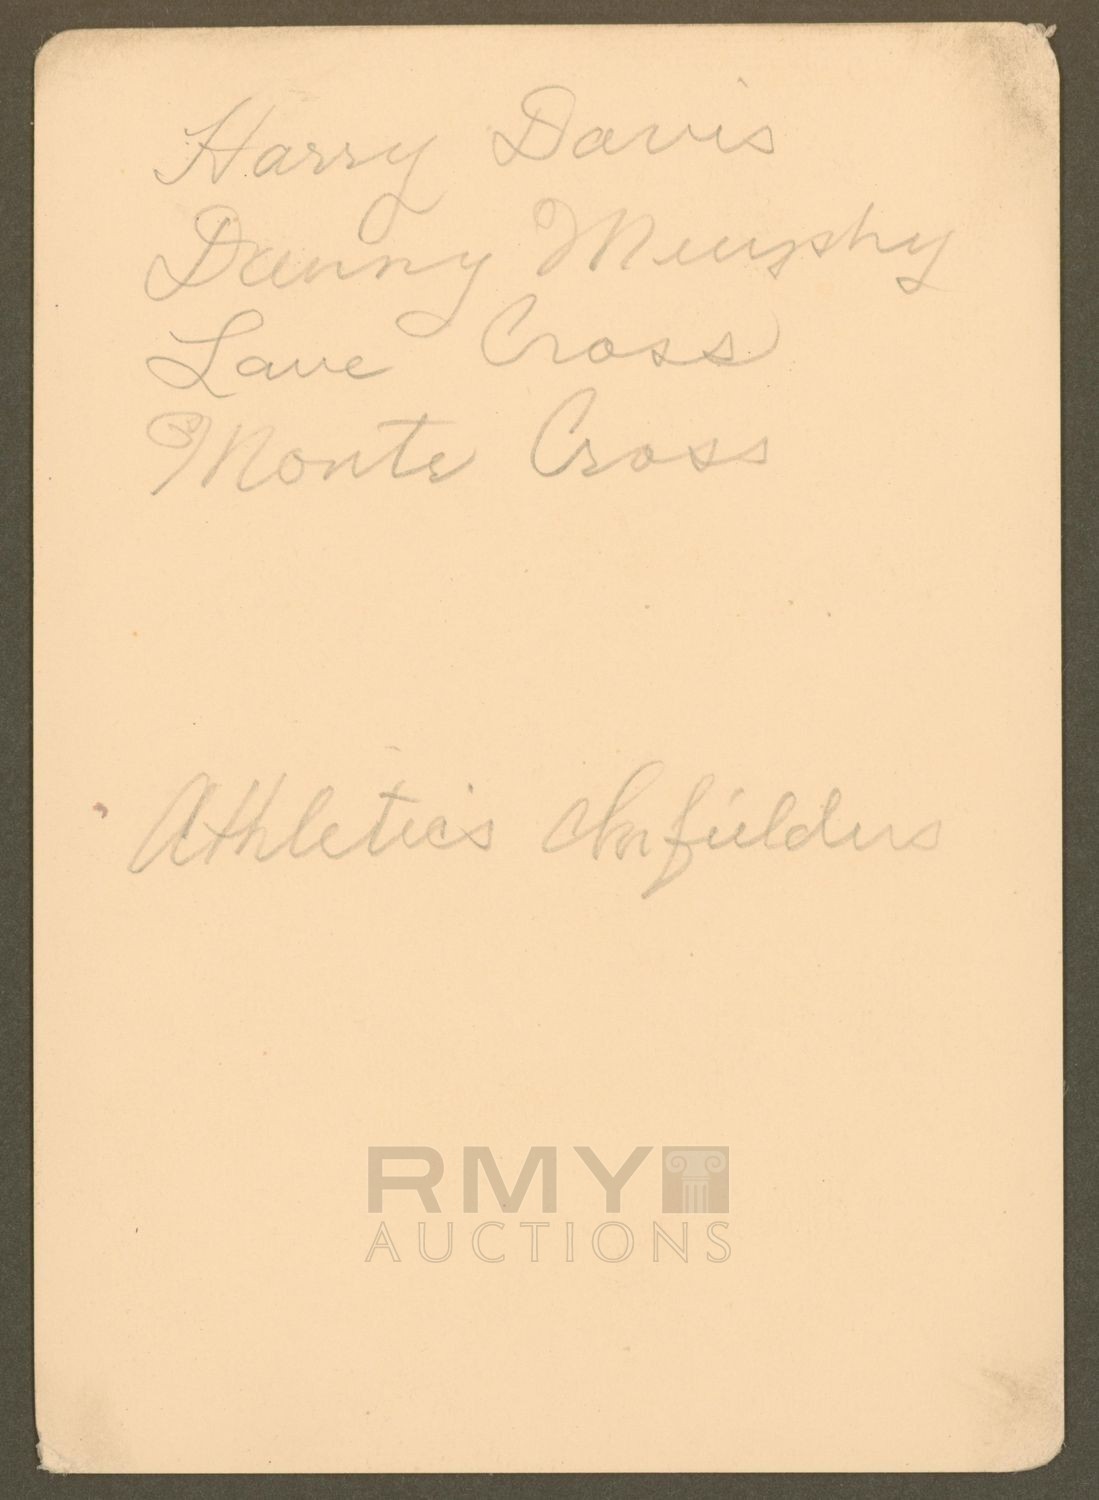 Harry Davis
Danny Murphy
Lave Cross
Monte Cross
Athletics Infielders
RMY
AUCTIONS